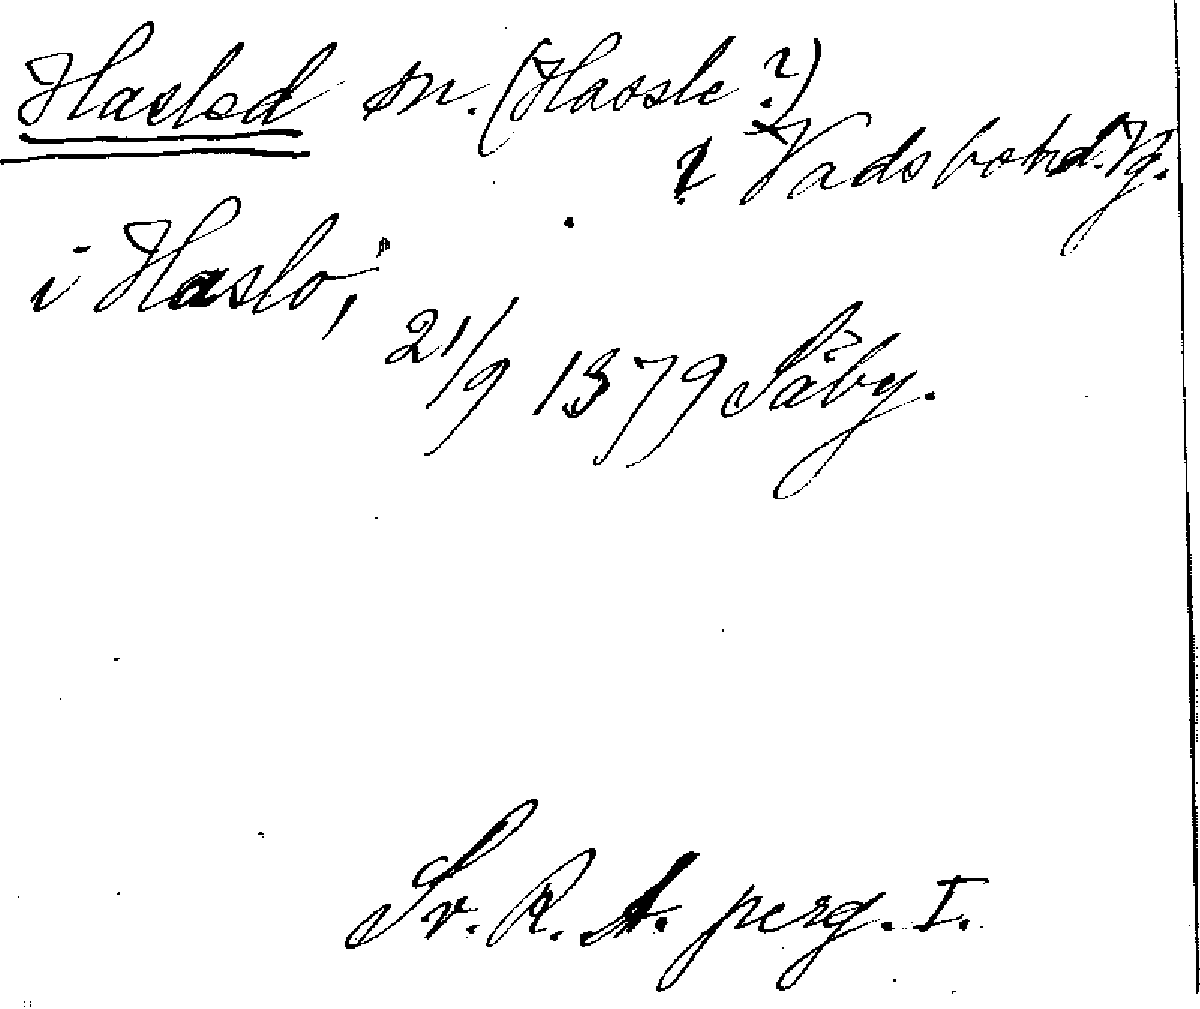 Hasled sn. (Hassle?)
? Vadsbo hd. Vg.
i Haslo,"
21/9 1379 Säby.
Sv. R. A. perg. I.